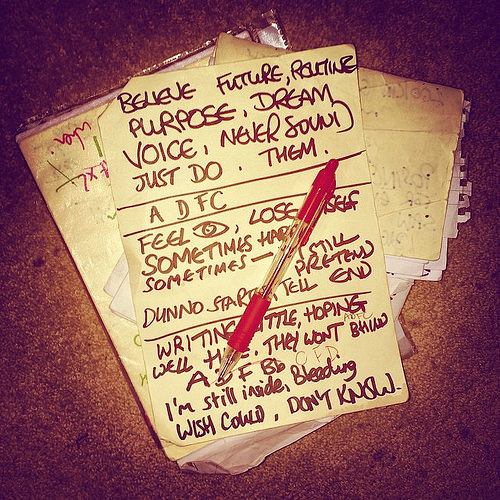 BELIEVE FUTURE, ROUTINE
PURPOSE, DREAM
VOICE, NEVER SOUND
JUST DO. THEM.
A D F C
FEEL, LOSE
SOMETIMES HARD
SOMETIMES — I STILL
PRETEND
DUNNO START, TELL END
WRITING LITTLE, HOPING
WELL HIDE. THEY WONT BEHIND
A D F Bb
I'm still inside, Bleeding
WISH COULD, DON'T KNOW.